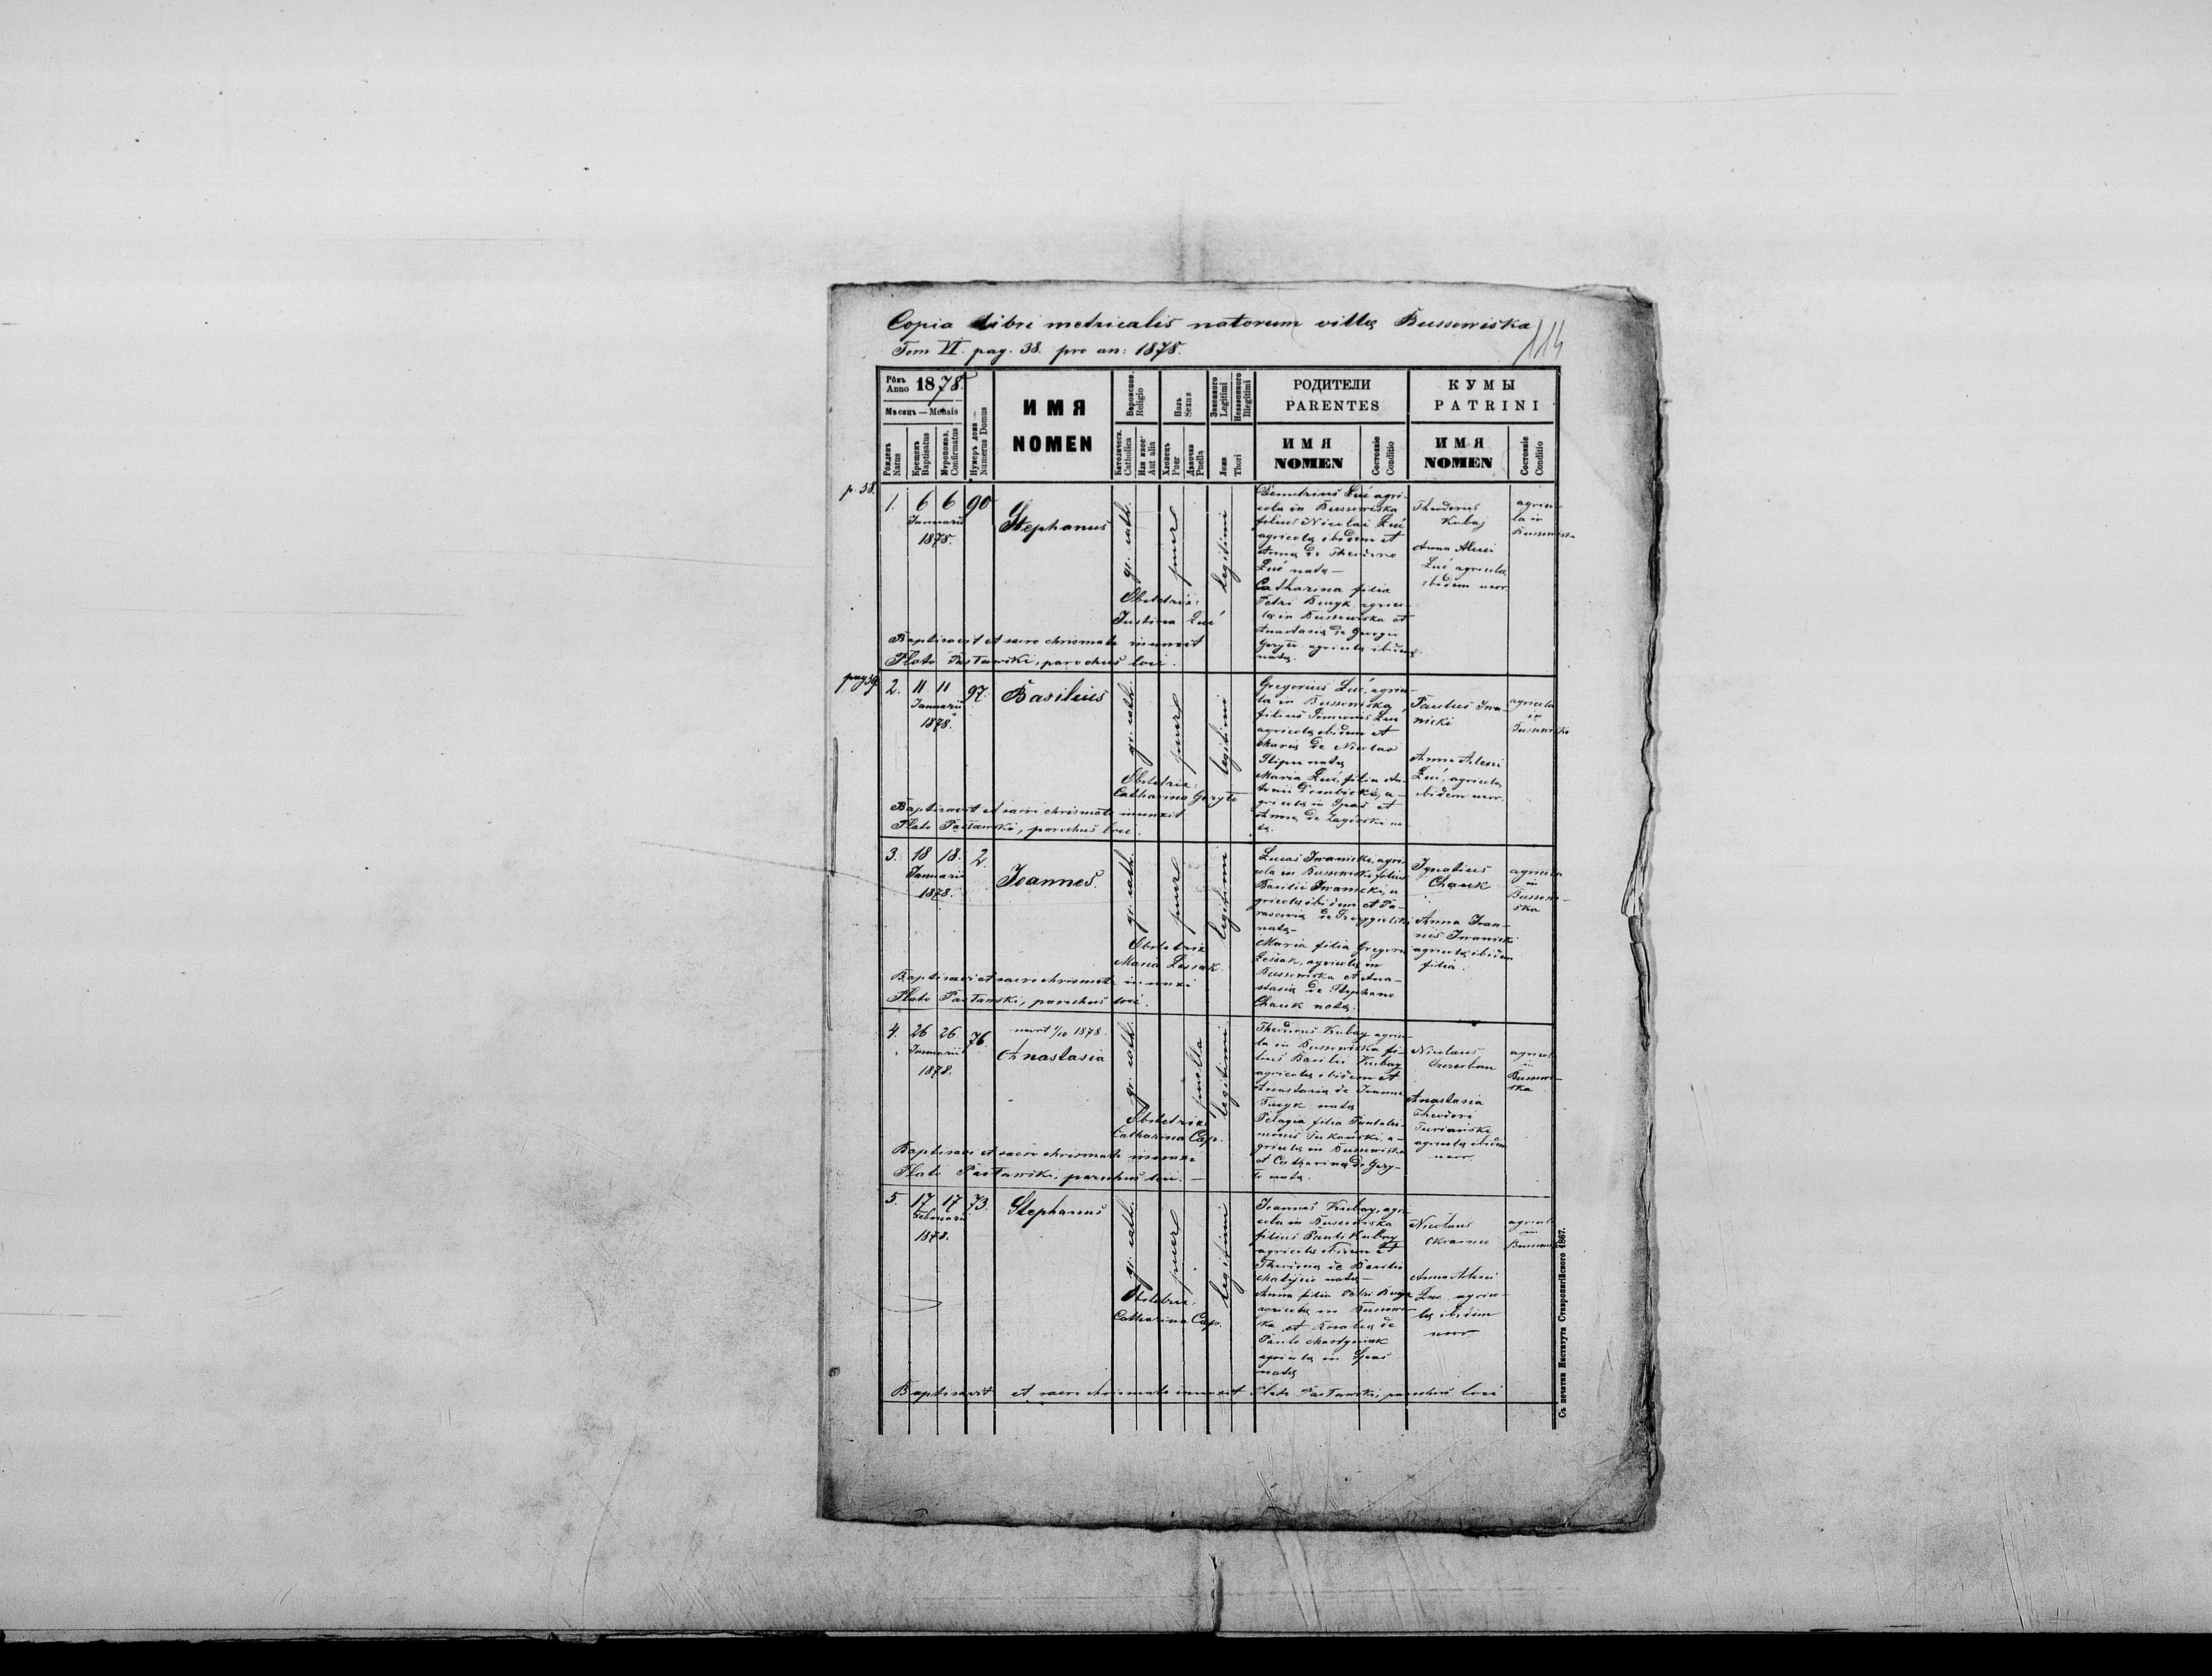 Copia Libri metricalis natorum villę Bussowiska
114
Tom VI. pag. 38. pro an: 1878.
Рôкъ
Anno 1878.
Мѣсяць — Mensis
Рожденъ
Natus
Крещенъ
Baptisatus
Мѵропомаз.
Confirmatus
Нумеръ дома
Numerus Domus
ИМЯ
NOMEN
Вѣроиспов.
Religio
Католическ.
Catholica
Или иное
Aut alia
Полъ
Sexus
Хлопецъ
Puer
Дѣвочка
Puella
Законного
Legitimi
Незаконного
Illegitimi
Ложа
Thori
РОДИТЕЛИ
PARENTES
ИМЯ
NOMEN
Состояніе
Conditio
КУМЫ
PATRINI
ИМЯ
NOMEN
Состояніе
Conditio
p. 38.
1. 6 6 90
Januarii
1878.
Stephanus
gr. cath.
puer
legitimi
Obstetrix:
Justina Luć
Demetrius Luć agri-
cola in Bussowiska
filius Nicolai Luć
agricolę ibidem et
Annę de Theodoro
Luć natę —
Catharina filia
Petri Bucyk agrico-
lę in Bussowiska et
Anastasię de Georgio
Geryło agricolę ibidem
natę.
Theodorus
Kubaj
Anna Alexii
Luć agricolę
ibidem uxor
agrico-
la in
Bussowiska
Baptisavit et sacro chrismate inunxit
Plato Pasławski, parochus loci.
pag 39.
2. 11 11 97.
Januarii
1878.
Basilius
gr. cath.
puer
legitimi
Obstetrix:
Catharina Geryło
Gregorius Luć, agrico-
la in Bussowiska
filius Simeonis Luć
agricolę ibidem et
Marię de Nicolao
natę
Maria Luć, filia An-
tonii Dembicki, a-
gricolę in Spas et
Annę de Zagórski na-
tę.
Paulus Iwa-
nicki
Anna Alexii
Luć, agricolę
ibidem uxor.
agricola
in
Bussowiska
Baptisavit et sacro chrismate inunxit
Plato Pasławski, parochus loci.
3. 18 18. 2.
Januarii
1878.
Joannes.
gr. cath.
puer
legitimi
Obstetrix
Maria Lessak.
Lucas Iwanicki, agri-
cola in Bussowiska filius
Basilii Iwanicki, a-
gricolę ibidem et Pa-
rascevię de
natę —
Maria filia Gregorii
Lessak, agricolę in
Bussowiska et Ana-
stasię de Stephano
Chauk natę.
Ignatius
Chauk
Anna Joan-
nis Iwanicki
agricolę ibidem
filia.
agricola
in
Bussowi-
ska
Baptisavi et sacro chrismate inunxi
Plato Pasławski, parochus loci.
4. 26 26. 76.
Januarii
1878.
1/10 1878.
Anastasia
gr. cath.
puella
legitimi
Obstetrix
Catharina Cap.
Theodorus Kubay agrico-
la in Bussowiska fi-
lius Basilii Kubay
agricolę ibidem et
Anastasię de Joanne
natę
Pelagia filia Pantalei-
monis Tukański, a-
gricolę in Bussowiska
et Catharinę de Gery-
ło natę.
Nicolaus
Szczerban
Anastasia
Theodori
Turiański
agricolę ibidem
uxor.
agricola
in
Bussowi-
ska
Baptisavi et sacro chrismate inunxi
Plato Pasławski, parochus loci. —
5. 17 17 73.
Februarii
1878.
Stephanus
gr. cath.
puer
legitimi
Obstetrix:
Catharina Cap.
Joannes Kubay, agri-
cola in Bussowiska
filius Pauli Kubay
agricolę ibidem et
de Basilio
natę —
Anna filia Petri Bucyk
agricolę in Bussowi-
ska et Rosalię de
Paulo Martyniak
agricolę in Spas
natę
Nicolaus
Anna Alexii
Luć agrico-
lę ibidem
uxor
agricola
in
Bussowiska
Baptisavit et sacro chrismate inunxit Plato Pasławski, parochus loci
Съ печатни Института Ставропигійского 1867.